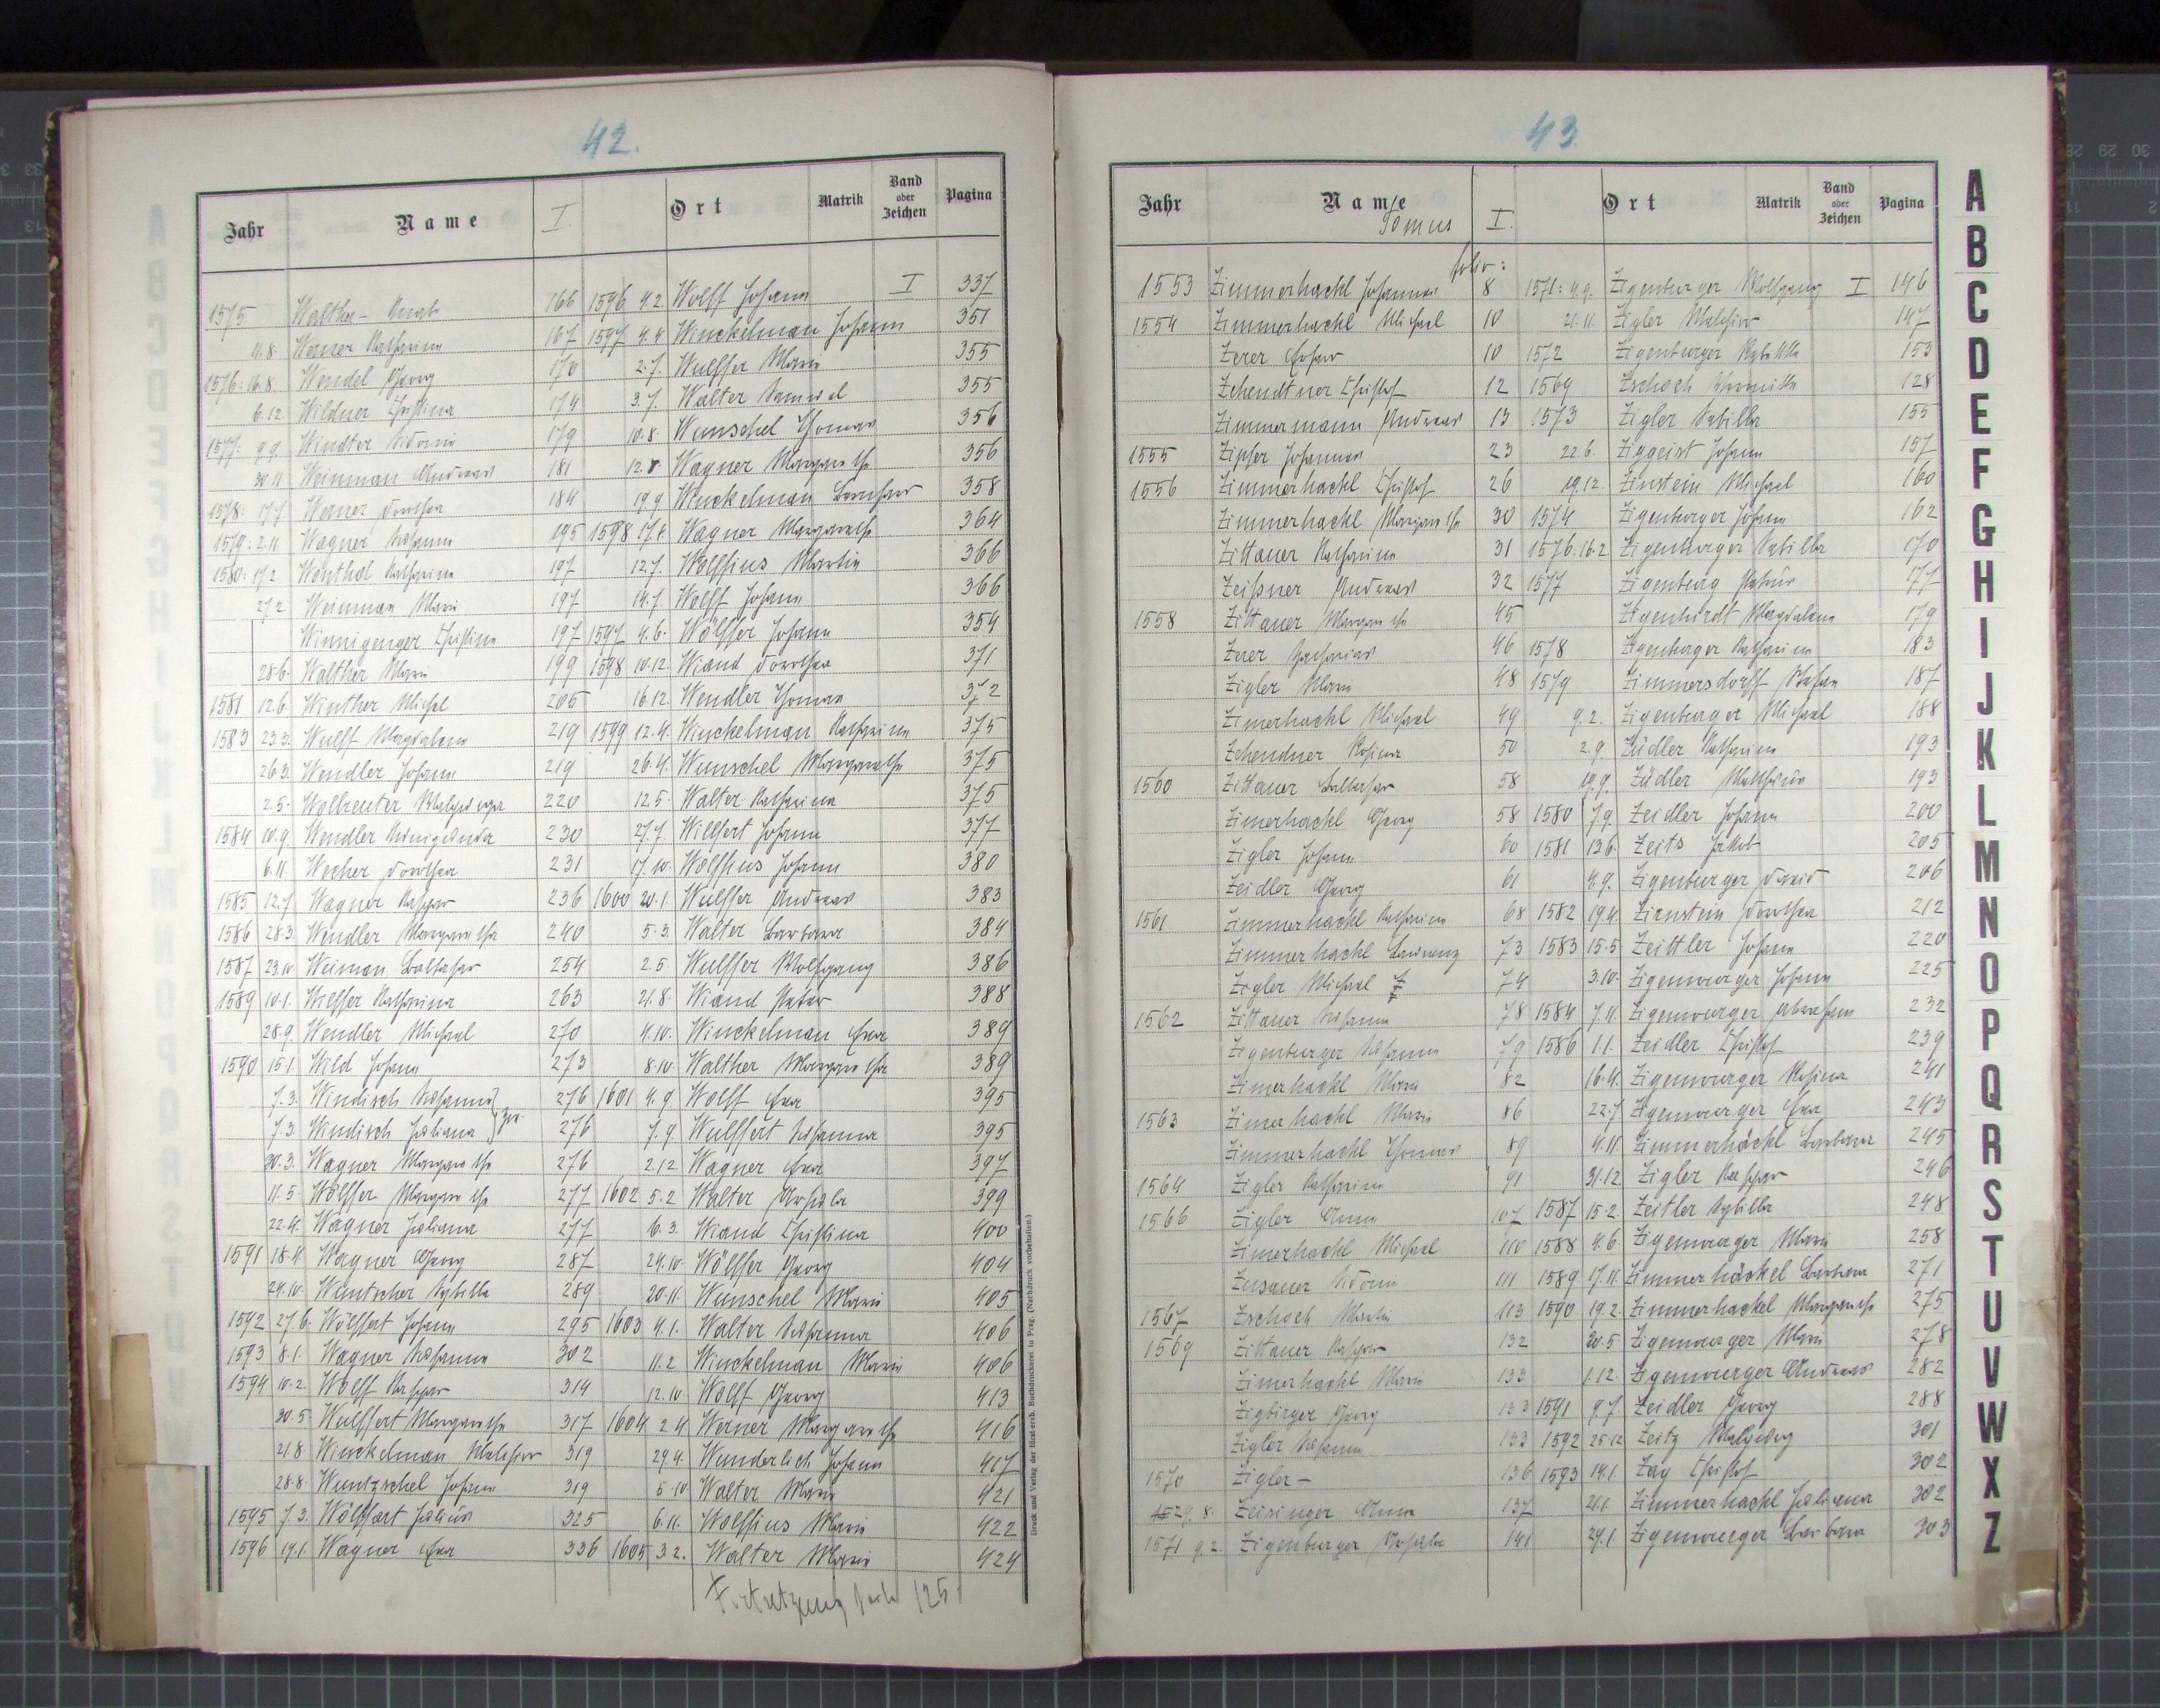 42.
Jahr Name I. Ort Matrik Band oder Zeichen Pagina
1575 Walther - 166
11.8. Werner Katharina 167
1576: 16.8. Wendel Georg 170
6.12 Wildner Christina 174
1577: 9.9. Windter 179
30.11 Weinman Andreas 181
1578: 17.7. Werner Dorothea 184
1579: 2.11. Wagner Susanna 195
1580: 17.2 Katharina 197
27.2 Weinman Maria 197
Winnigenger Christina 197
28.6. Walther Maria 199
1581 12.6. Winther Michel 205
1583 23.3. Wulff Magdalena 219
26.3. Wendler Johann 219
2.5. 220
1584 10.9. Wendler Kunigunda 230
6.11. Wecher Dorothea 231
1585 12.7 Wagner Kaspar 236
1586 28.3. Wendler Margaretha 240
1587 23.10 Weiman Balthasar 254
1589 10.1. Katharina 263
28.9. Wendler Michael 270
1590 15.1. Wild Johann 273
7.3. Windisch Susanna 276
7.3. Windisch Juliana 276
30.3. Wagner Margaretha 276
11.5 Wölffer Margaretha 277
22.4. Wagner Juliana 277
1591 18.4. Wagner Georg 287
29.10. Wuntscher Sybilla 289
1592 27.6. Wölffert Johann 295
1593 8.1. Wagner Susanna 302
1594 10.2. Wolff Kaspar 314
30.5. Wulffert Margaretha 317
21.8 Winckelman Melchior 319
28.8. Wuntzschel Johann 319
1595 7.3. Wölffart Julius 325
1596 19.1. Wagner Eva 336
1596 4.2. Wolff Johann I 337
1597 4.4 Winckelman Johann 351
2.7. Wulffer Maria 355
3.7. Walter Samuel 355
10.8. Wunschel Thomas 356
12.8. Wagner Margaretha 356
19.9 Winckelman Bernhard 358
1598 17.4. Wagner Margaretha 364
12.7. Wolffius Martin 366
14.7. Wolff Johann 366
1597 4.6. Wölffer Johann 354
1598 10.12. Wiand Dorothea 371
16.12. Wendler Thomas 372
1599 12.4. Winckelman Katharina 375
26.4. Wunschel Margaretha 375
12.5. Walter Katharina 375
27.7. Willfert Johann 377
17.10. Wolffius Johann 380
1600 20.1. Wulffer Andreas 383
5.3. Walter Barbara 384
2.5. Wulffer Wolfgang 386
21.8. Wiand Peter 388
4.10. Winckelman Eva 389
8.10. Walther Margaretha 389
1601 4.9 Wolff Eva 395
7.9. Wulffert Susanna 395
2.12. Wagner Eva 397
1602 5.2 Walter Ursula 399
6.3. Wiand Christina 400
24.10 Wölffer Georg 404
20.11. Wunschel Maria 405
1603 4.1. Walter Susanna 406
11.2 Winckelman Maria 406
12.10. Wolff Georg 413
1604 2.4. Werner Margaretha 416
29.4. Wunderlich Johann 417
5.10 Walter Maria 421
6.11. Wolffius Maria 422
1605 3.2. Walter Maria 424
Fortsetzung 125
Druck und Verlag der fürst-erzb. Buchdruckerei in Prag. (Nachdruck vorbehalten.)
43
Jahr Name Tomus I. Ort Matrik Band oder Zeichen Pagina
folio:
1553 Zimmerhackl Johannes 8
1554 Zimmerhackl Michael 10
Zerer 10
Zehendtner Christof 12
Zimmermann Andreas 13
1555 Zipfer Johannes 23
1556 Zimmerhackl Christof 26
Zimmerhackl Margaretha 30
Zittauer Katharina 31
Zeißner Andreas 32
1558 Zittauer Margaretha 45
Zerer Zacharias 46
Zigler Maria 48
Zimerhackl Michael 49
Zehendner Rosina 50
1560 Zittauer Balthasar 58
Zimerhackl Georg 58
Zigler Johann 60
Zeidler Georg 61
1561 Zimmerhackl Katharina 68
Zimmerhackl Laurenz 73
Zigler Michael 74
1562 Zittauer Susanna 78
Zigenburger Susanna 79
Zimerhackl Maria 82
1563 Zimerhackl Maria 86
Zimmerhackl Thomas 89
1564 Zigler Katharina 91
1566 Zigler Anna 107
Zimerhackl Michael 110
Zusauer 111
1567 Zschoch Martin 113
1569 Zittauer Kaspar 132
Zimerhackl Maria 133
Zigbirger Georg 133
Zigler Susanna 133
1570 Zigler - 136
29.8. Zeisinger Anna 137
1571 9.2. Zigenburger Ursula 141
1571: 4.9. Zigenburger Wolfgang I 146
21.11. Zigler Melchior 147
1572 Zigenburger Sybilla 153
1569 Zschoch Veronika 128
1573 Zigler Sybilla 155
22.6. Ziggeist Johann 157
19.12. Zinstein Michael 160
1574 Zigenburger Johann 162
1576. 16.2 Zigenburger Sybilla 170
1577 Zigenburg 177
Zigenhirdt Magdalena 179
1578 Zigenburger Katharina 183
1579 Zimmersdorff Stefan 187
9.2. Zigenburger Michael 188
2.9. Züdler Katharina 193
19.9. Züdler Matthäus 193
1580 7.9. Zeidler Johann 200
1581 13.6. Zeits Jakob 205
4.9. Zigenburger David 206
1582 19.4. Zirnstein Dorothea 212
1583 15.5 Zeittler Johann 220
3.10. Zigenwurger Johann 225
1584 7.11. Zigenwurger Abraham 232
1586 1.1. Zeidler Christof 239
16.4. Zigenwurger Rosina 241
22.7. Zigenwurger Eva 243
4.11. Zimmerhäckl Barbara 245
31.12. Zigler Kaspar 246
1587 15.2. Zeitler Sybilla 248
1588 4.6. Zigenwurger Maria 258
1589 17.11. Zimmerhäckel Barbara 271
1590 19.2. Zimmerhackel Margaretha 275
20.5 Zigenwurger Maria 278
1.12. Zigenwurger Andreas 282
1591 9.7. Zeidler Georg 288
1592 25.12 Zeitz 301
1593 14.1. Zag Christof 302
21.1. Zimmerhackl Juliana 302
29.1. Zigenwurger Barbara 303
A
B
C
D
E
F
G
H
I
J
K
L
M
N
O
P
Q
R
S
T
U
V
W
X
Z